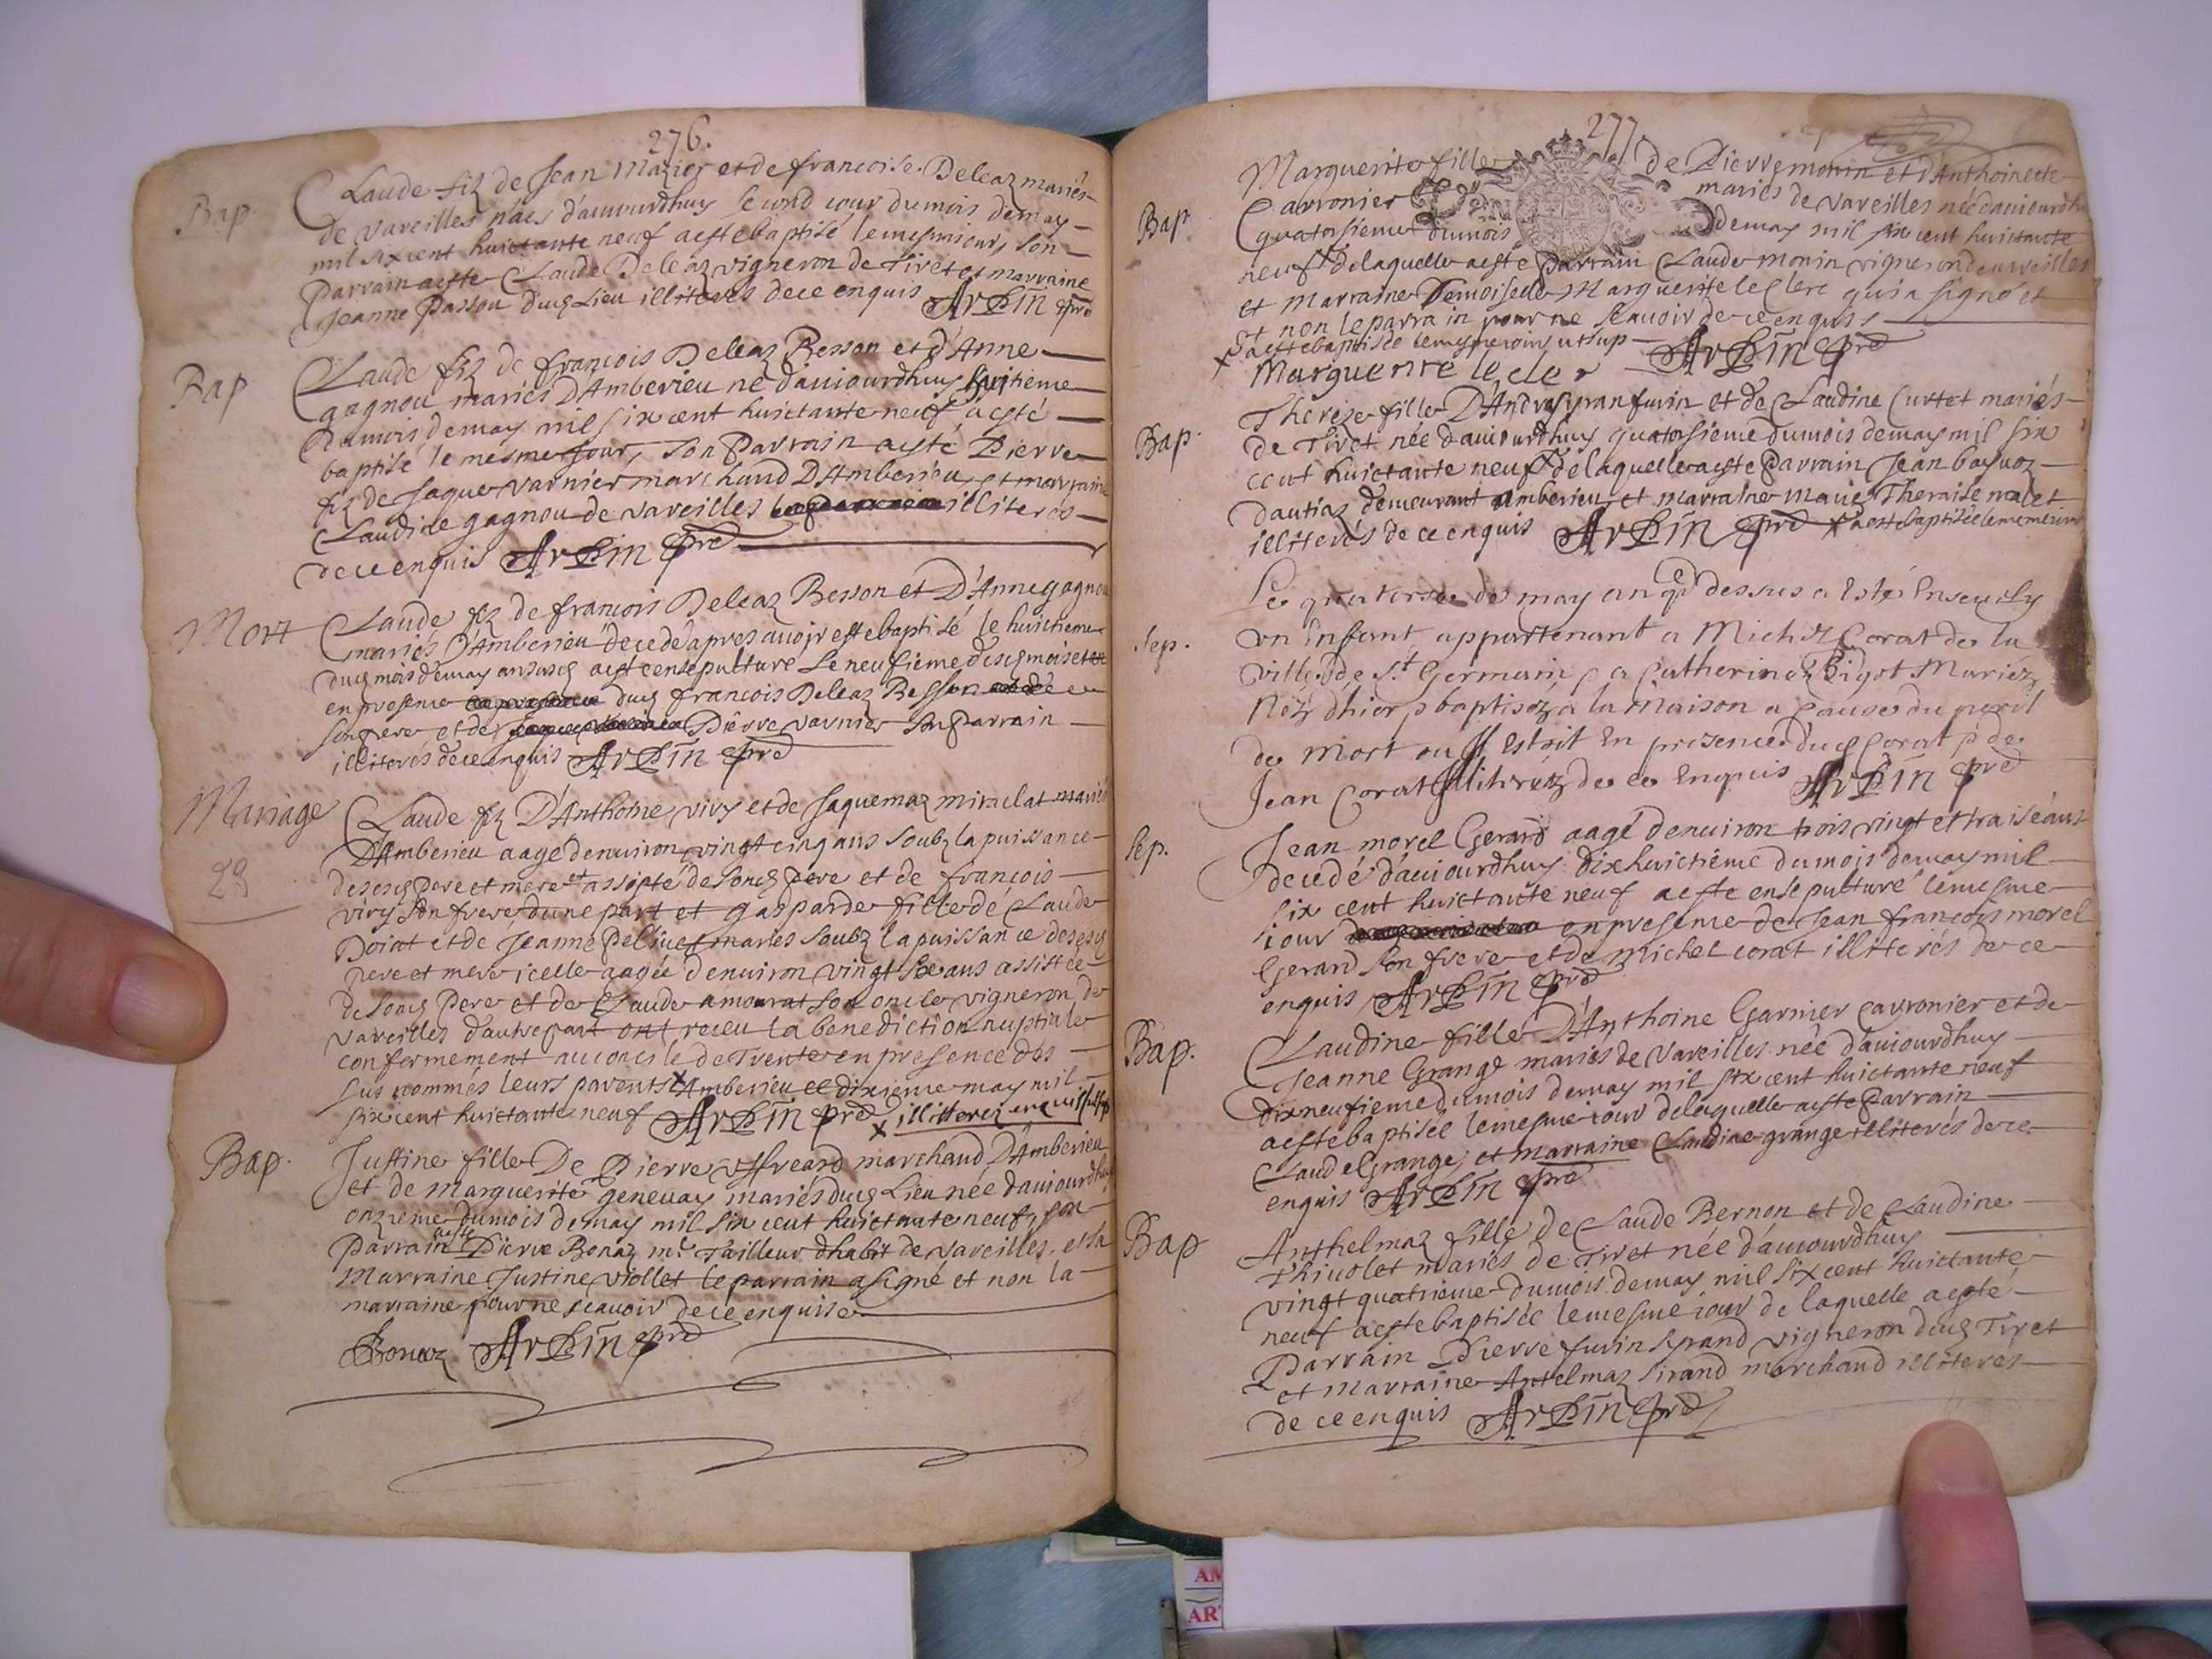 276.
Bap.
Claude fiz de Jean Mazier et de francoise Deleaz mariés
de Vareilles n'aés d'auiourdhuy second iour du mois de may
mil six cent huictante neuf aesté baptisé le mesme iour, son
Parrain aesté Claude Deleaz vigneron de Tiret et marraine
Jeanne Passou dud Lieu illiterés de ce enquis Arpin pre
Bap
Claude fiz de francois Deleaz Besson et d'Anne
gagnou mariés D'Amberieu né d'auiourdhuy huitieme
du mois de may mil six cent huictante neuf a esté
baptisé le mesme Jour, son Parrain a esté Pierre
fiz de Jaque Varnier marchand D'Amberieu, et marraine
Claudine gagnou de Vareilles illiterés
de ce enquis Arpin pre
Mort
Claude fiz de francois Deleaz Besson et D'Anne gagnou
mariés D'Amberieu decedé apres auoir esté baptisé le huictieme
dud mois de may an susd aesté ensepulturé le neufieme desd mois et
en presence dud francois Deleaz Besson
son pere et de Pierre Varnier son Parrain
illiterés de ce enquis Arpin pre
Mariage
23
Claude fiz D'Anthoine viry et de Jaquemaz miraclat mariés
D'Amberieu aagé denuiron vingt cinq ans soubz la puissance
de sesd Pere et mere et assisté de sond Pere et de francois
viry son frere d'une part et Gasparde fille de Claude
Doirat et de Jeanne Peliuet mariés soubz la puissance de sesd
pere et mere icelle aagée denuiron vingt six ans assistée
de sond Pere et de Claude amourat son oncle vigneron de
Vareilles d'autre part ont receu la benediction nuptiale
conformement au concile de Trente en presence des
sus nommés leurs parents x Amberieu ce dixieme may mil
six cent huictante neuf Arpin pre x illitterez enquis
Bap.
Justine fille De Pierre Uffreard marchand D'Amberieu
et de Marguerite geneuay mariés dud Lieu née d'auiourdhuy
onzieme du mois de may mil six cent huictante neuf, son
Parrain aesté Pierre Bonaz me Tailleur d'habit de Vareilles, et sa
Marraine Justine viollet le parrain a signé et non la
marraine pour ne scauoir de ce enquise
Bonaz Arpin pre
277
Bap
Marguerite fille de Pierre monin et d'Anthoinette
Carronier mariés de Vareilles née d'auiourdhuy
quatorsieme du mois de may mil six cent huictante
neuf x de laquelle aesté Parrain Claude monin vigneron de Vareilles
et Marraine Demoiselle Marguerite le Clerc qui a signé et
et non le parrain pour ne scauoir de ce enquis
x a esté baptisée le mesme iour ut sup Arpin pre
Marguerite le cler
Bap.
Thereze fille D'Andre furin et de Claudine Curtet mariés
de Tiret née d'auiourdhuy quatorsieme du mois de may mil six
cent huictante neuf x de laquelle aesté Parrain Jean
demeurant Amberieu, et marraine Marie Theraise malet
illiterés de ce enquis Arpin pre x a esté baptisée le mesme iour
Sep.
Le quatorse de may an que dessus a Esté Enseuely
un Enfant appartenant a Michel Corat de la
Ville de St Germain & a Catherine Bigot Mariez,
Néz d'hier, baptiséz a la Maison a Cause du peril
de Mort ou Il Estoit En presence dud Corat & de
Jean Corat Illitéréz de ce Enquis Arpin pre
Sep.
Jean morel Gerard aagé denuiron trois vingt et traise ans
decedé d'auiourdhuy dixhuictieme du mois de may mil
six cent huictante neuf aesté ensepulturé le mesme
iour en presence de Jean francois morel
Gerard son frere et de Michel corat illiterés de ce
enquis Arpin pre
Bap.
Claudine fille D'Anthoine Garnier Carronier et de
Jeanne Grange mariés de Vareilles née d'auiourdhuy
dixneufieme du mois de may mil six cent huictante neuf
aesté baptisée le mesme iour de laquelle aesté Parrain
Claude Grange, et marraine Claudine grange illiterés de ce
enquis Arpin pre
Bap
Anthelmaz fille de Claude Bernon et de Claudine
Thiuolet mariés de Tiret née d'auiourdhuy
vingt quatrieme du mois de may mil six cent huictante
neuf aesté baptisée le mesme iour de laquelle aesté
Parrain Pierre furin sirand vigneron dud Tiret
et Marraine Antelmaz Sirand marchand illiterés
de ce enquis Arpin pre